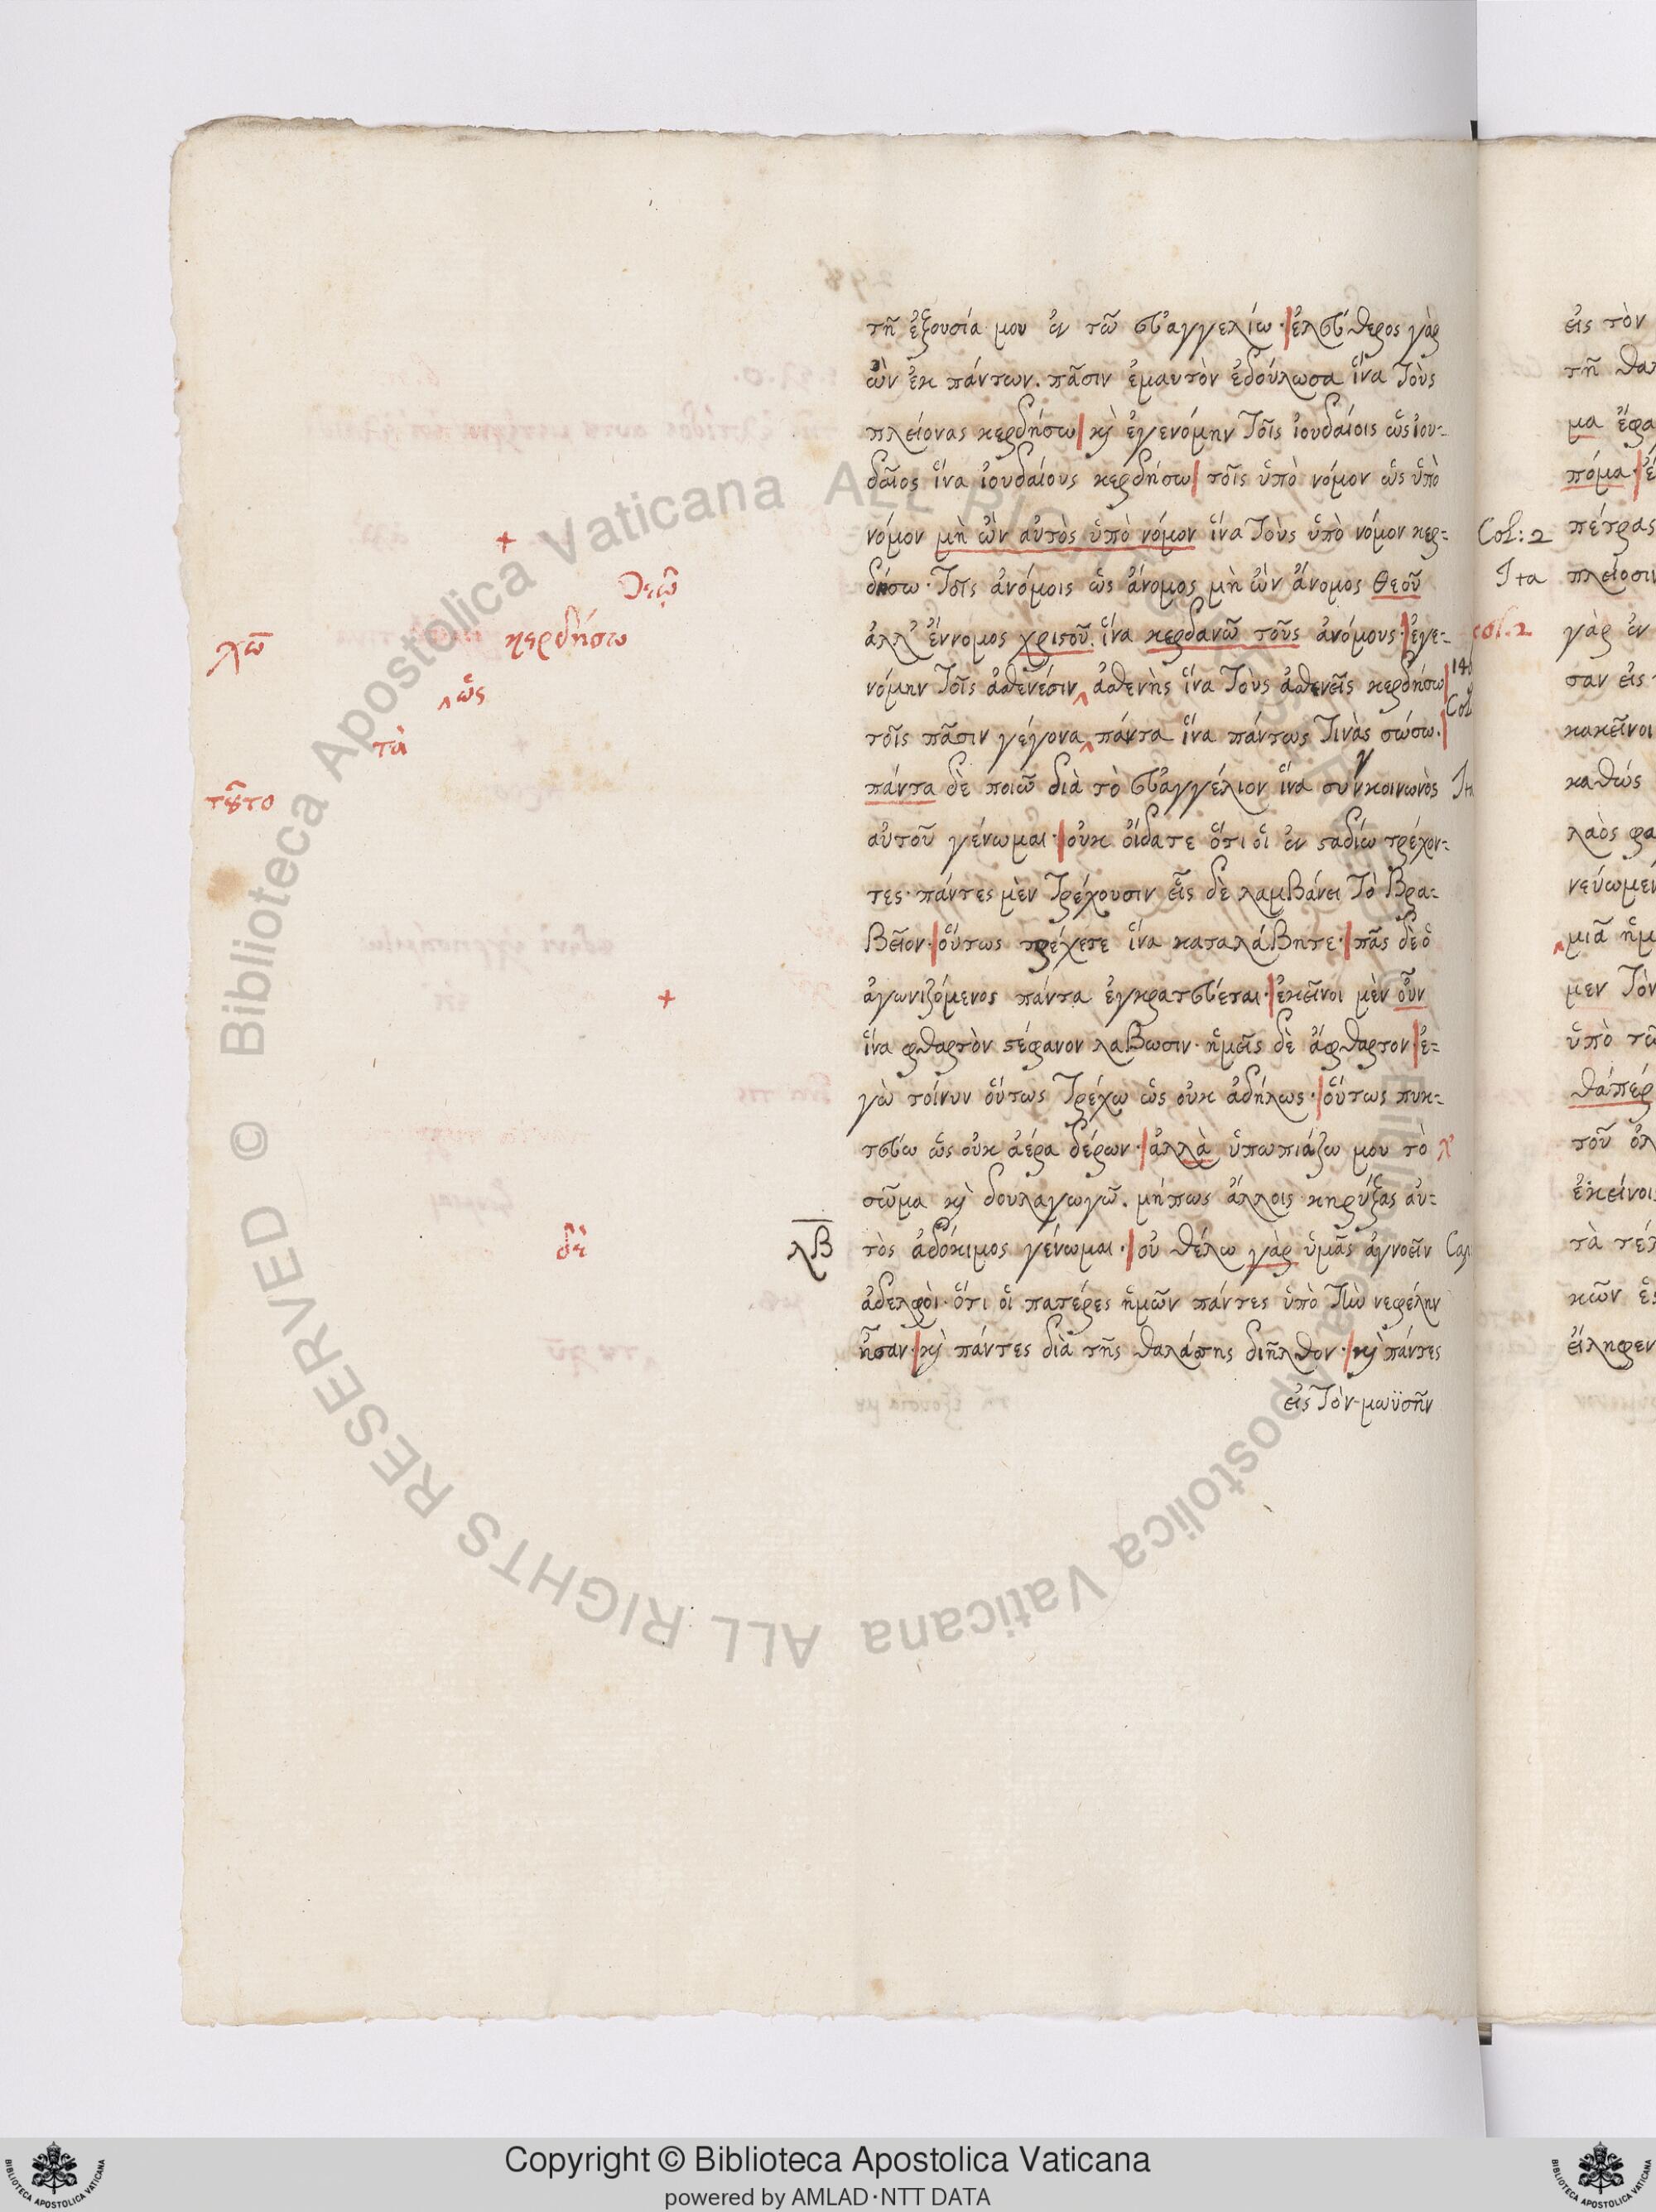 τῆ ἐξουσία μου ἐν τῶ εὐαγγελίω· ἐλεύθερος γὰρ
ὢν ἐκ πάντων. πᾶσιν ἐμαυτὸν ἐδούλωσα ἵνα τοὺς
πλείονας κερδήσω κὶ ἐγενόμην τοῖς ἰουδαίοις ὡς ἰου-
δαῖος ἵνα ἰουδαίους κερδήσω τοῖς ὑπὸ νόμον ὡς ὑπὸ
+ νόμον μὴ ὢν αὐτὸς ὑπὸ νόμον ἵνα τοὺς ὑπὸ νόμον κερ-
θεῶ δήσω· τοῖς ἀνόμοις ὡς ἄνομος μὴ ὢν ἄνομος θεοῦ
χῶ κερδήσω ἀλλ' ἔννομος χριστοῦ. ἵνα κερδανῶ τοὺς ἀνόμους· ἐγε-
‸ὡς νόμην τοῖς ἀσθενέσιν‸ ἀσθενὴς ἵνα τοὺς ἀσθενεῖς κερδήσω
τὰ τοῖς πᾶσιν γέγονα‸ πάντα ἵνα πάντως τινὰς σώσω.
τοῦτο πάντα δὲ ποιῶ διὰ τὸ εὐαγγέλιον ἵνα συνκοινωνὸς
αὐτοῦ γένωμαι· οὐκ οἴδατε ὅτι οἱ ἐν σταδίω τρέχον-
τες· πάντες μὲν τρέχουσιν εἷς δὲ λαμβάνει τὸ βρα-
βεῖον· οὕτως τρέχετε ἵνα καταλάβητε· πᾶς δὲ ὁ
+ ἀγωνιζόμενος πάντα ἐγκρατεύεται· ἐκεῖνοι μὲν οὖν
ἵνα φθαρτὸν στέφανον λαβωσιν· ἡμεῖς δὲ ἄφθαρτον· ἐ-
γὼ τοίνυν οὕτως τρέχω ὡς οὐκ ἀδήλως· οὕτως πυκ-
τεύω ὡς οὐκ ἀέρα δέρων· ἀλλὰ ὑπωπιάζω μου τὸ λ'
σῶμα κὶ δουλαγωγῶ. μήπως ἄλλοις κηρύξας αὐ-
δὲ λβ τὸς ἀδόκιμος γένωμαι· οὐ θέλω γὰρ ὑμᾶς ἀγνοεῖν
ἀδελφοὶ· ὅτι οἱ πατέρες ἡμῶν πάντες ὑπὸ τὴν νεφέλην
ἦσαν· κὶ πάντες διὰ τῆς θαλάσσης διῆλθον· κὶ πάντες
εἰς τὸν μωϋσῆν
εἰς τὸν
τῆ θα
μα ἔφα
πόμα· ἔ
Col: 2 πέτρας
Ita πλείοσιν
col. 2 γὰρ ἐν
σαν εἰς
κακεῖνοι
καθώς
λαὸς φα
νεύωμεν
‸μιᾶ ἡμ
μεν τὸν
ὑπὸ τῶ
θάπερ
τοῦ ὀλ
ἐκείνοι
τὰ τέλ
κῶν ἑς
εἴληφεν
Copyright © Biblioteca Apostolica Vaticana
powered by AMLAD·NTT DATA
© Biblioteca Apostolica Vaticana ALL RIGHTS RESERVED